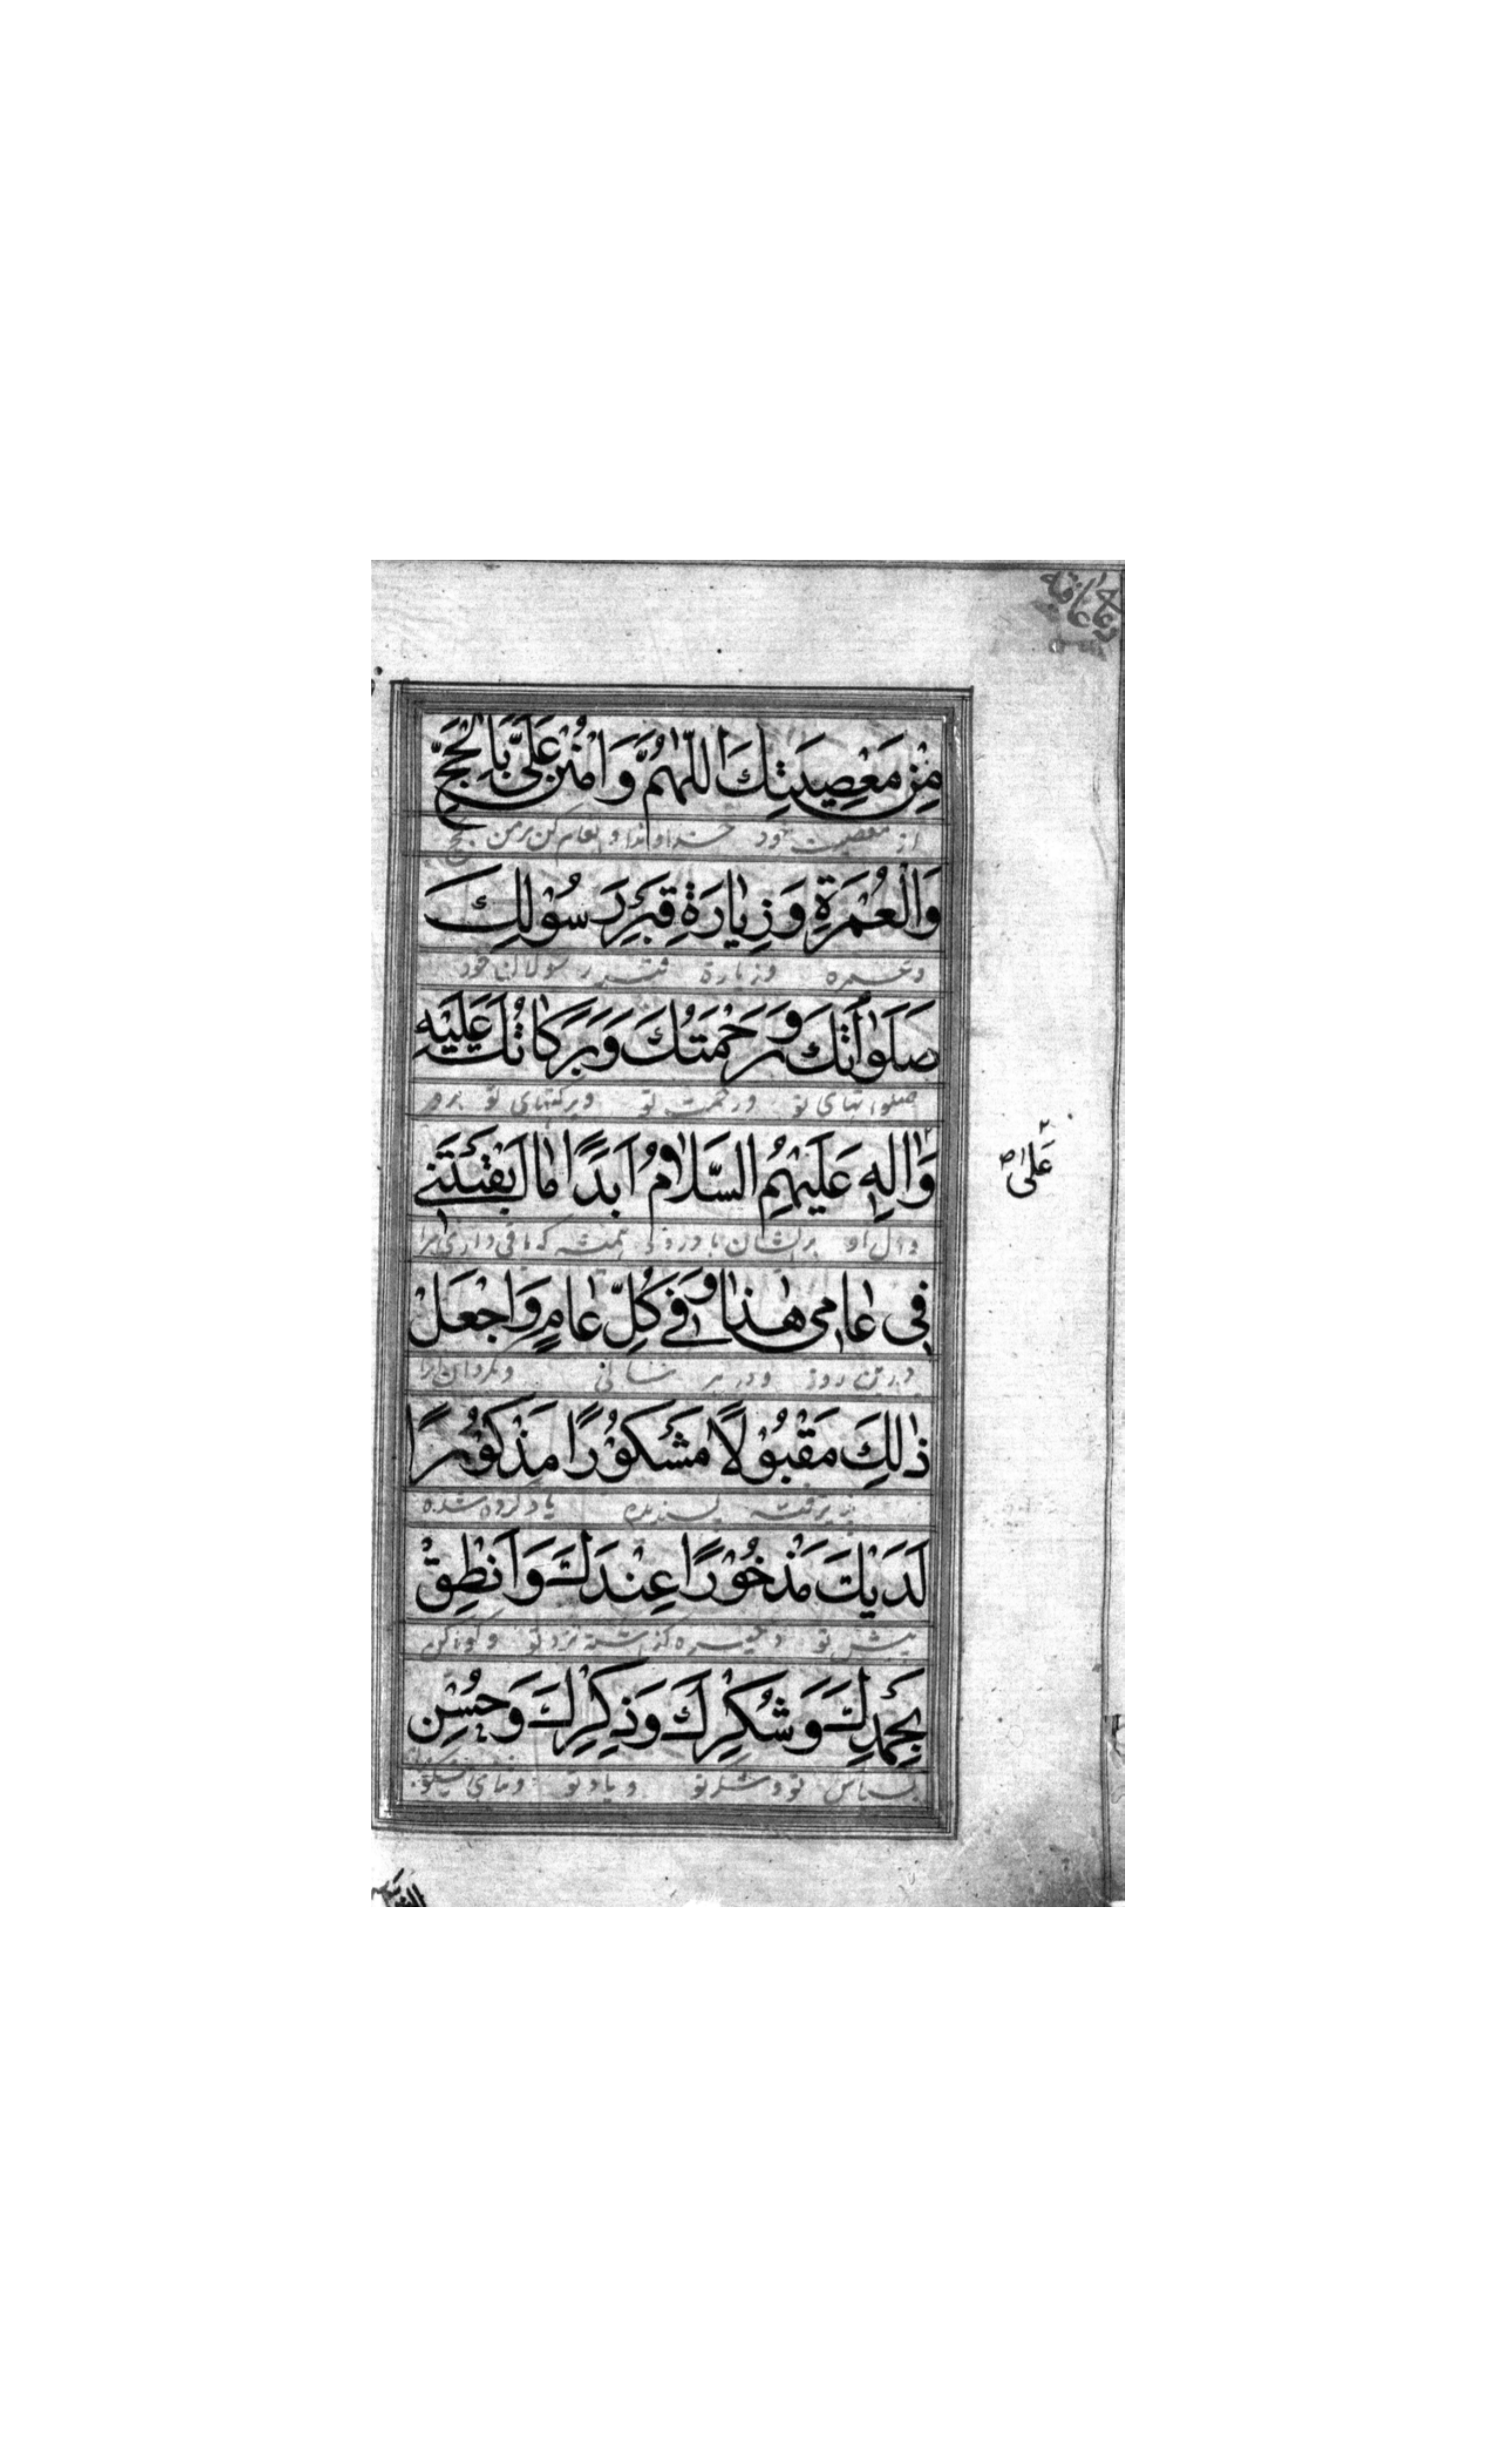 مِنْ مَعْصِيَتِكَ اَللّٰهُمَّ وَامْنُنْ عَلَيَّ بِالْحَجِّ
از معصیت خود خداوندا و انعام کن بر من بحج
وَالْعُمْرَةِ وَزِيٰارَةِ قَبْرِ رَسُوْلِكَ
وعمره وزیارة قبر رسول خود
صَلَوٰاتُكَ وَرَحْمَتُكَ وَبَرَكٰاتُكَ عَلَيْهِ
صلواتهای تو ورحمت تو وبرکتهای تو برو
وَاٰلِهِ عَلَيْهِمُ السَّلٰامُ اَبَدًا مٰا اَبْقَيْتَنِي
عَلٰى
وآل او بر ایشان باد همیشه که باقی داری مرا
فِي عٰامِي هٰذٰا وَفِي كُلِّ عٰامٍ وَاجْعَلْ
درین روز ودر هر وبگردان
ذٰلِكَ مَقْبُوْلًا مَشْكُوْرًا مَذْكُوْرًا
پذیرفته پسندیده یاد کرده شده
لَدَيْكَ مَذْخُوْرًا عِنْدَكَ وَاَنْطِقْ
پیش تو ذخیره گذاشته نزد تو وگویا کن
بِحَمْدِكَ وَشُكْرِكَ وَذِكْرِكَ وَحُسْنِ
بسپاس تو وشکر تو ویاد تو